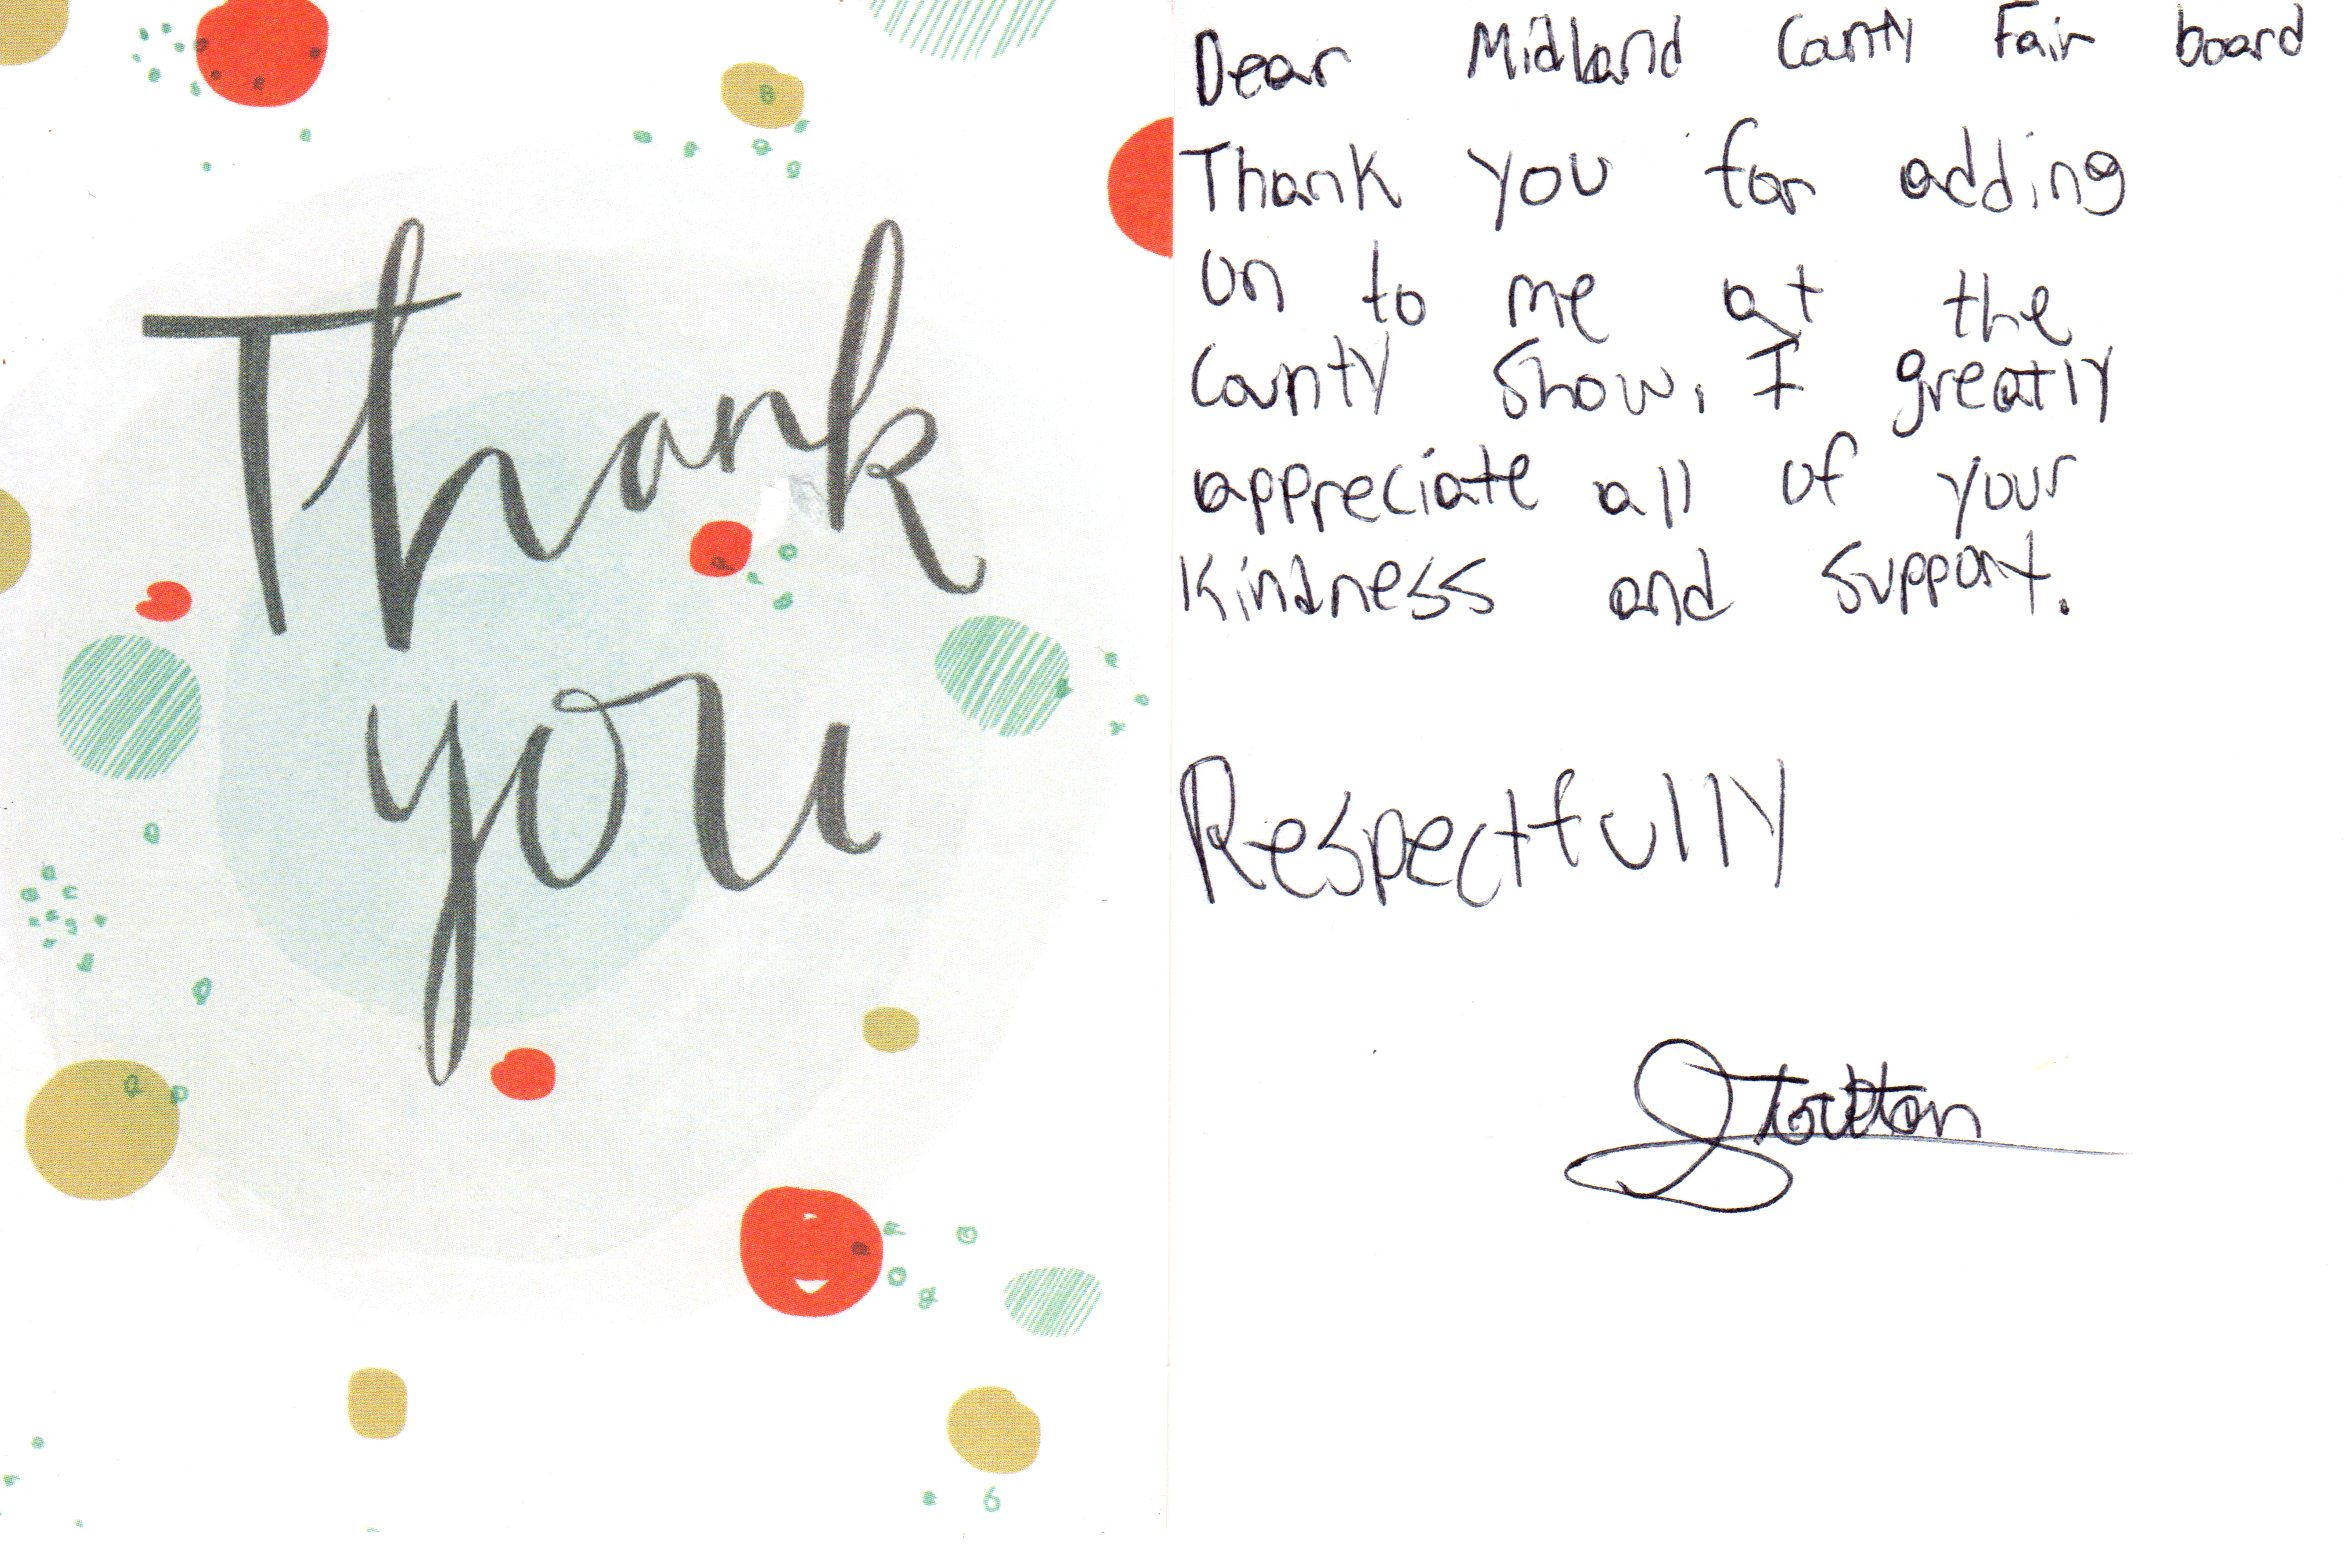 Thank
you
Dear Midland County Fair board
Thank you for adding
on to me at the
County Show. I greatly
appreciate all of your
Kindness and support.
Respectfully
Stockton